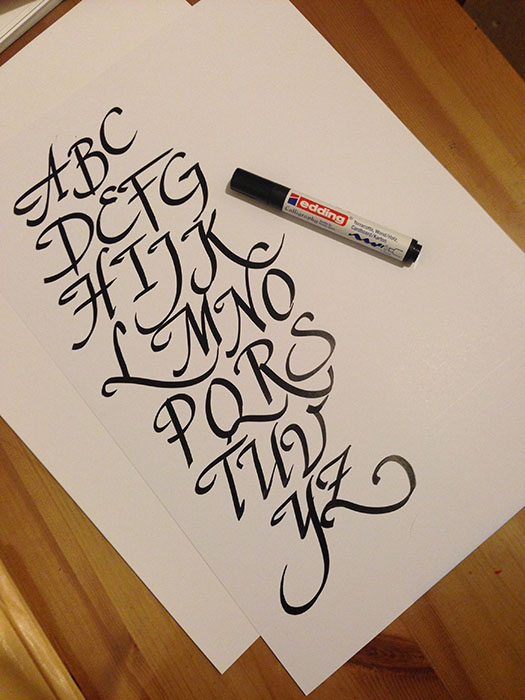 ABC
DEFG
HIJK
LMNO
PQRS
TUV
YZ
edding